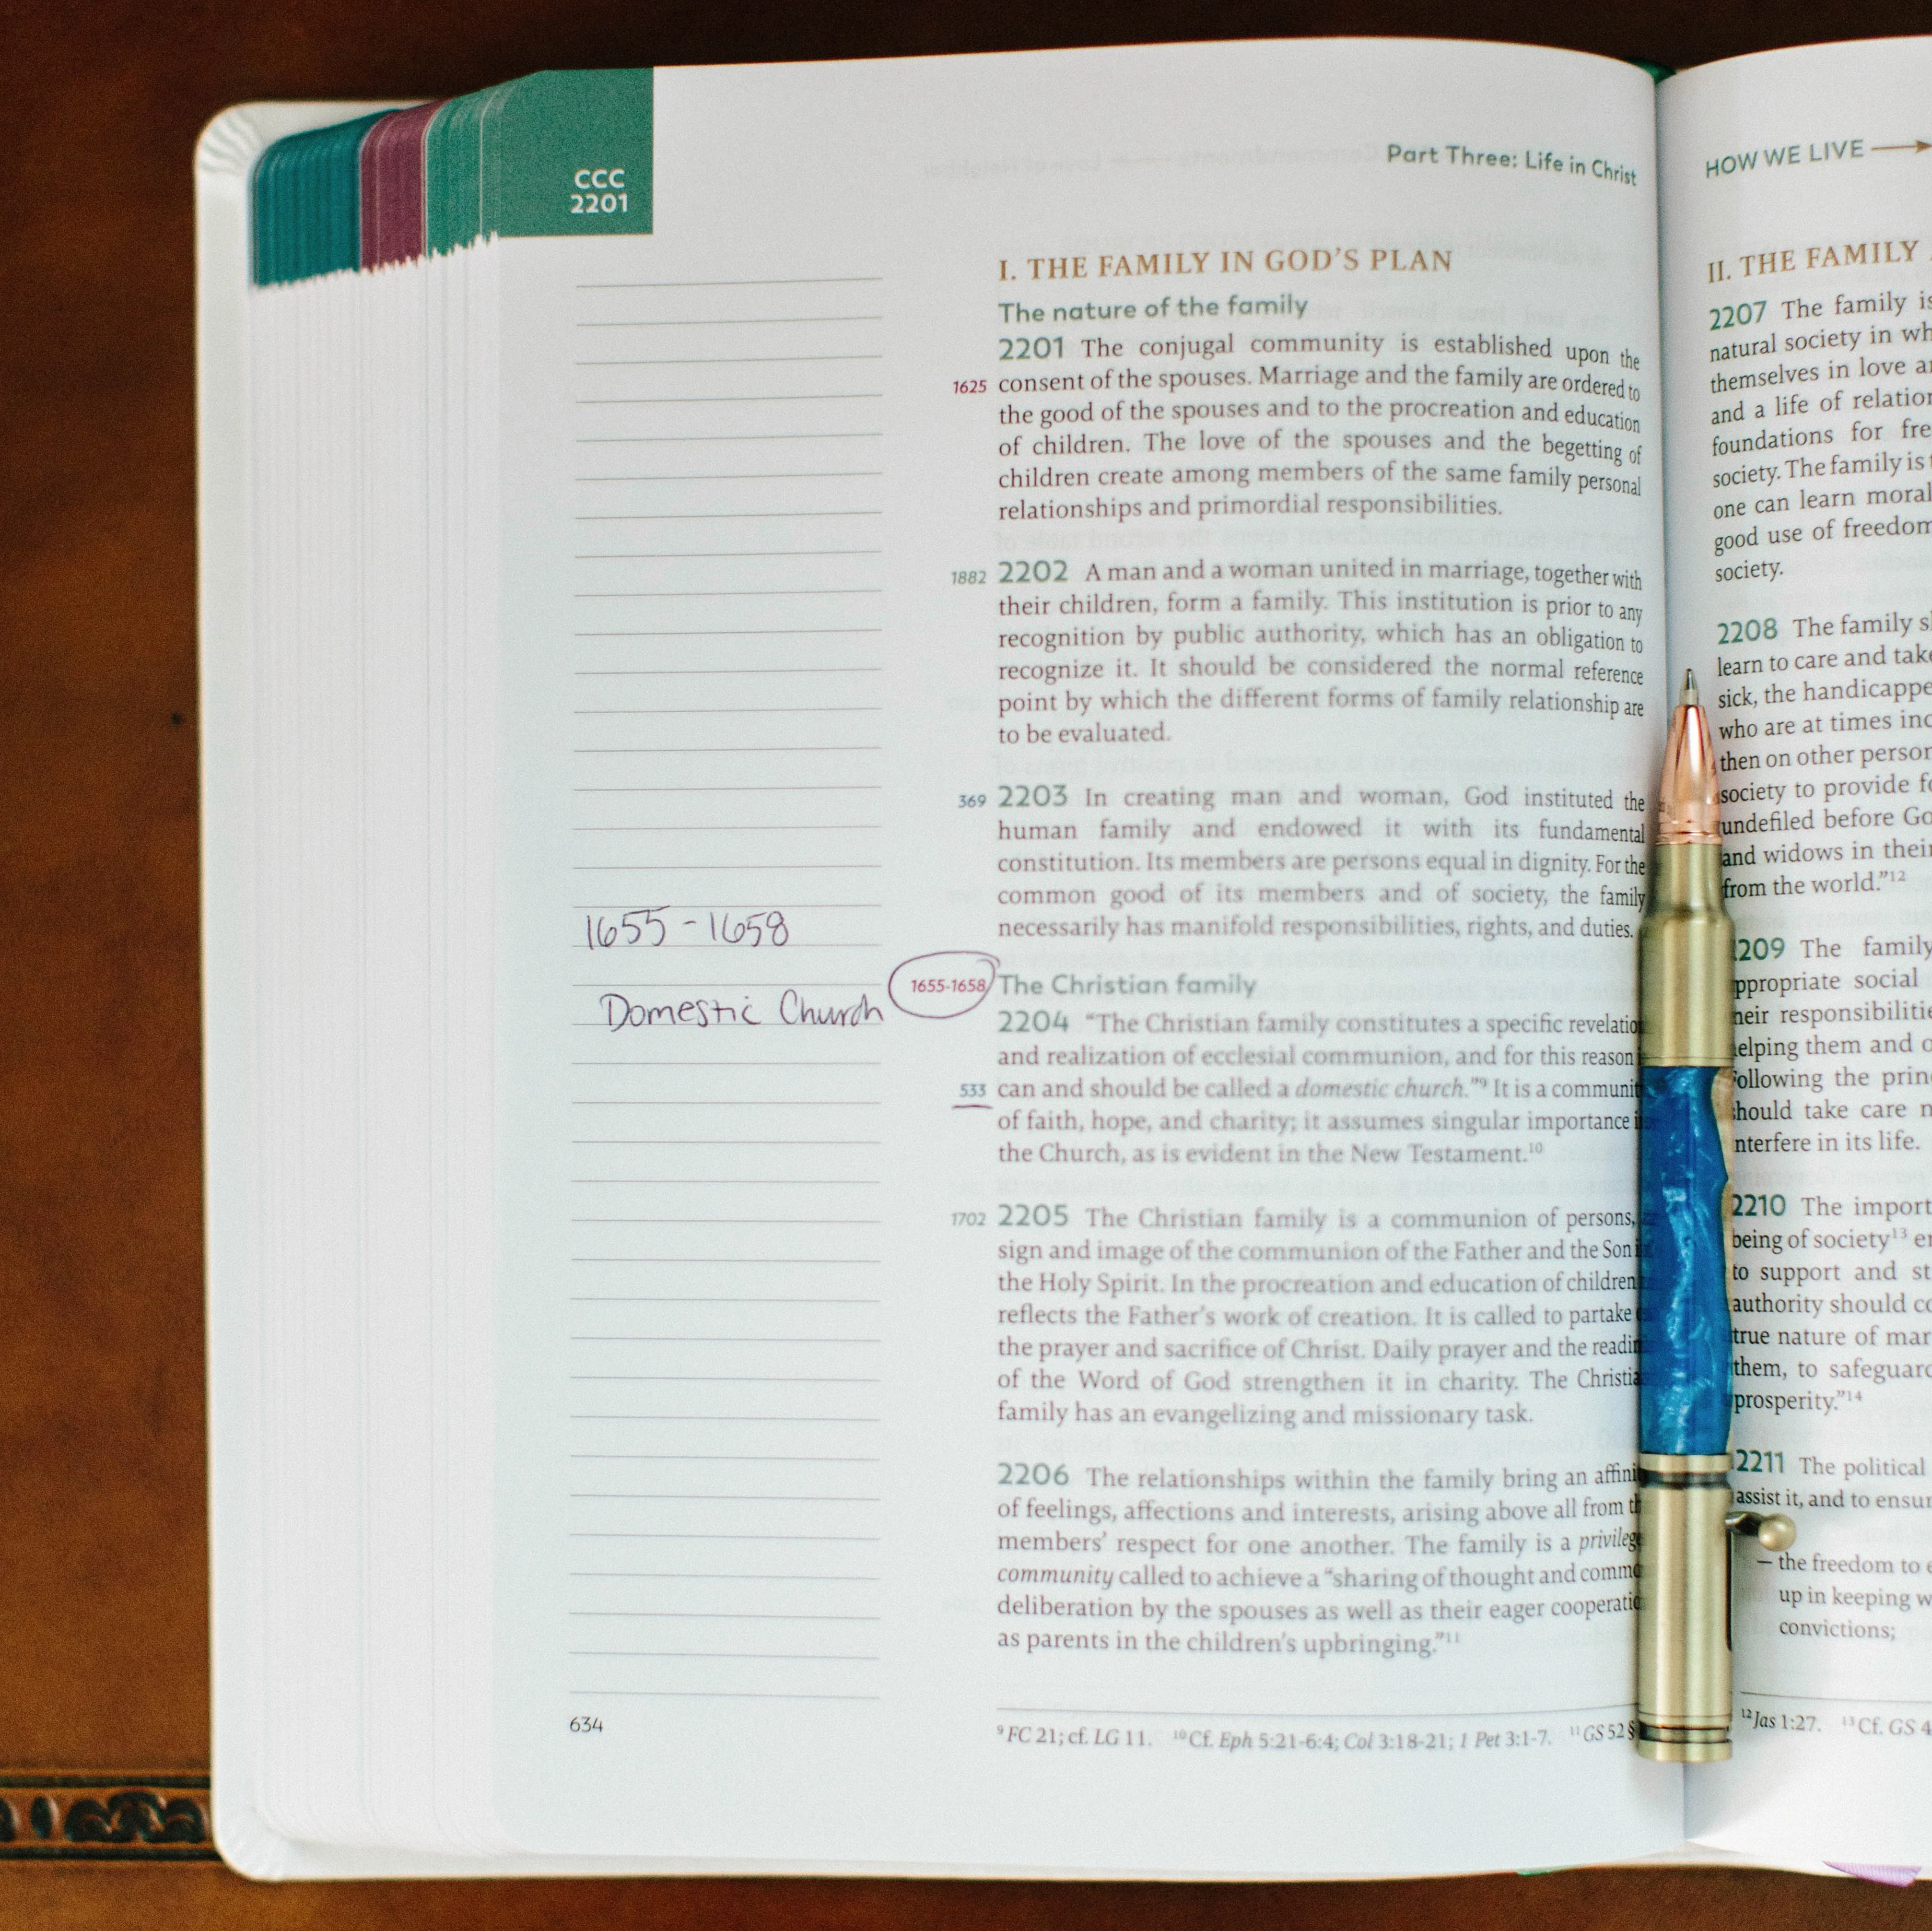 CCC
2201
Part Three: Life in Christ
I. THE FAMILY IN GOD'S PLAN
The nature of the family
2201 The conjugal community is established upon the
1625 consent of the spouses. Marriage and the family are ordered to
the good of the spouses and to the procreation and education
of children. The love of the spouses and the begetting of
children create among members of the same family personal
relationships and primordial responsibilities.
1882 2202 A man and a woman united in marriage, together with
their children, form a family. This institution is prior to any
recognition by public authority, which has an obligation to
recognize it. It should be considered the normal reference
point by which the different forms of family relationship are
to be evaluated.
369 2203 In creating man and woman, God instituted the
human family and endowed it with its fundamental
constitution. Its members are persons equal in dignity. For the
common good of its members and of society, the family
necessarily has manifold responsibilities, rights, and duties.
1655-1658
1655-1658 The Christian family
Domestic Church
2204 "The Christian family constitutes a specific revelatio
and realization of ecclesial communion, and for this reason
533 can and should be called a domestic church."9 It is a communit
of faith, hope, and charity; it assumes singular importance
the Church, as is evident in the New Testament.10
1702 2205 The Christian family is a communion of persons,
sign and image of the communion of the Father and the Son
the Holy Spirit. In the procreation and education of children
reflects the Father's work of creation. It is called to partake
the prayer and sacrifice of Christ. Daily prayer and the readin
of the Word of God strengthen it in charity. The Christia
family has an evangelizing and missionary task.
2206 The relationships within the family bring an affini
of feelings, affections and interests, arising above all from th
members' respect for one another. The family is a privileg
community called to achieve a "sharing of thought and commo
deliberation by the spouses as well as their eager cooperatio
as parents in the children's upbringing."11
634
9 FC 21; cf. LG 11. 10 Cf. Eph 5:21-6:4; Col 3:18-21; 1 Pet 3:1-7. 11 GS 52 §
HOW WE LIVE
II. THE FAMILY
2207 The family is
natural society in wh
themselves in love an
and a life of relation
foundations for fre
society. The family is
one can learn moral
good use of freedom
society.
2208 The family s
learn to care and take
sick, the handicappe
who are at times inc
then on other person
society to provide fo
undefiled before Go
and widows in their
from the world."12
2209 The family
ppropriate social
heir responsibilitie
elping them and o
Following the prin
hould take care n
nterfere in its life.
2210 The import
being of society13 en
to support and st
authority should co
true nature of mar
them, to safeguard
prosperity."14
2211 The political
assist it, and to ensur
– the freedom to e
up in keeping w
convictions;
12 Jas 1:27. 13 Cf. GS 4